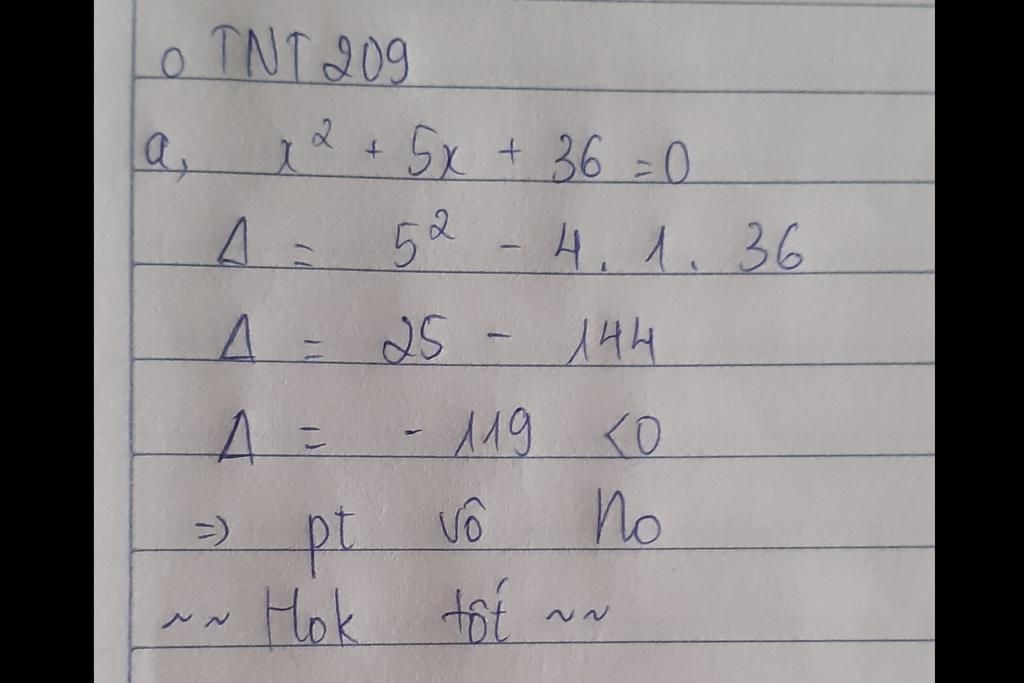 o TNT 209
a, x² + 5x + 36 = 0
Δ = 5² - 4 . 1 . 36
Δ = 25 - 144
Δ = - 119 < 0
=> pt vô No
~~ Hok tốt ~~